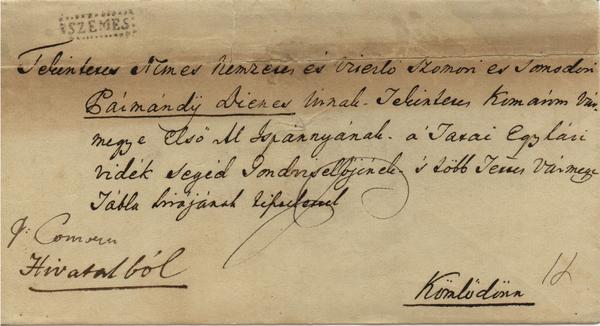 SZEMES
Tekintetes Nemes Nemzetes és Vitézlő Szomori es Somodori
Pázmándy Dienes Urnak Tekintetes Komárom Vár-
megye Első Al Ispánnyának a' Tatai Egyházi
vidék segéd Gondviselőjének s több Tettes Vármegye
Tábla birájának tisztelettel
p: Comorn
Hivatalból
Kömlödönn